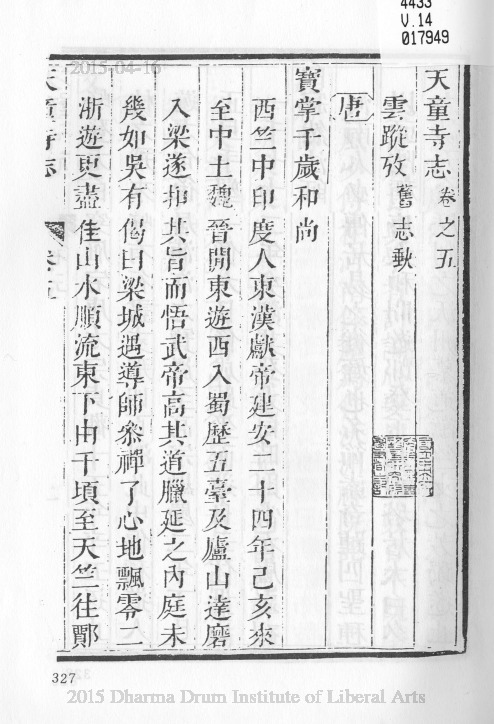 4433
V.14
017949
2015-04-16
天童寺志卷之五
雲蹤攷舊志缺
唐
寶掌千歲和尚
西竺中印度人東漢獻帝建安二十四年己亥來
至中土魏晉閒東遊西入蜀歷五臺及廬山達磨
入梁遂扣其旨而悟武帝高其道臘延之內庭未
幾如吳有偈曰梁城遇導師叅禪了心地飄零二
浙遊更盡佳山水順流東下由千頃至天竺往鄮
天童寺志 卷五
327
2015 Dharma Drum Institute of Liberal Arts